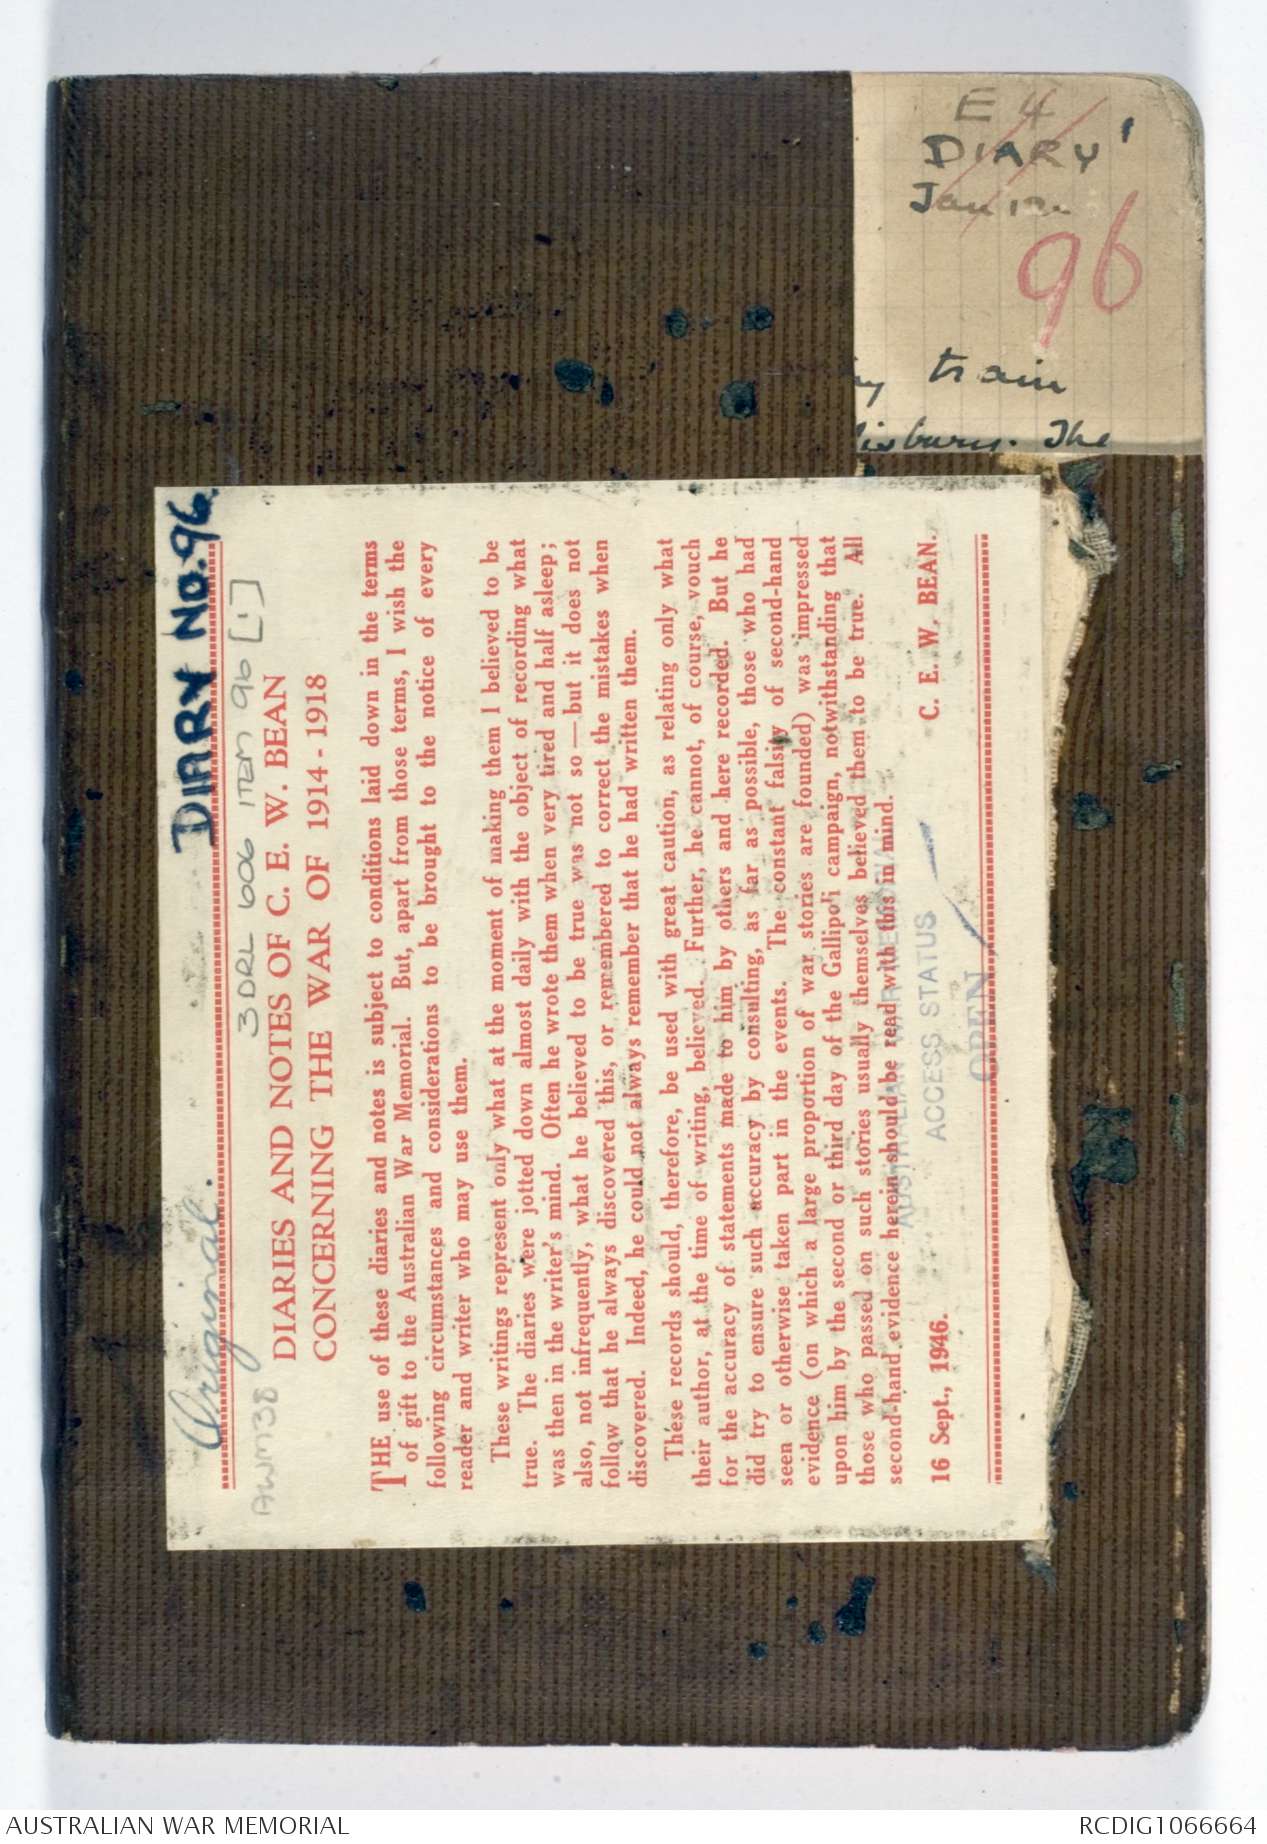 E 4
DIARY
Jan
96
train
The
Original.
DIARY No. 96.
AWM38
3 DRL 606 ITEM 96 [1]
DIARIES AND NOTES OF C. E. W. BEAN
CONCERNING THE WAR OF 1914-1918
THE use of these diaries and notes is subject to conditions laid down in the terms
of gift to the Australian War Memorial. But, apart from those terms, I wish the
following circumstances and considerations to be brought to the notice of every
reader and writer who may use them.
These writings represent only what at the moment of making them I believed to be
true. The diaries were jotted down almost daily with the object of recording what
was then in the writer's mind. Often he wrote them when very tired and half asleep;
also, not infrequently, what he believed to be true was not so — but it does not
follow that he always discovered this, or remembered to correct the mistakes when
discovered. Indeed, he could not always remember that he had written them.
These records should, therefore, be used with great caution, as relating only what
their author, at the time of writing, believed. Further, he cannot, of course, vouch
for the accuracy of statements made to him by others and here recorded. But he
did try to ensure such accuracy by consulting, as far as possible, those who had
seen or otherwise taken part in the events. The constant falsity of second-hand
evidence (on which a large proportion of war stories are founded) was impressed
upon him by the second or third day of the Gallipoli campaign, notwithstanding that
those who passed on such stories usually themselves believed them to be true. All
second-hand evidence herein should be read with this in mind.
16 Sept., 1946. C. E. W. BEAN.
AUSTRALIAN WAR MEMORIAL
ACCESS STATUS
OPEN
AUSTRALIAN WAR MEMORIAL
RCDIG1066664